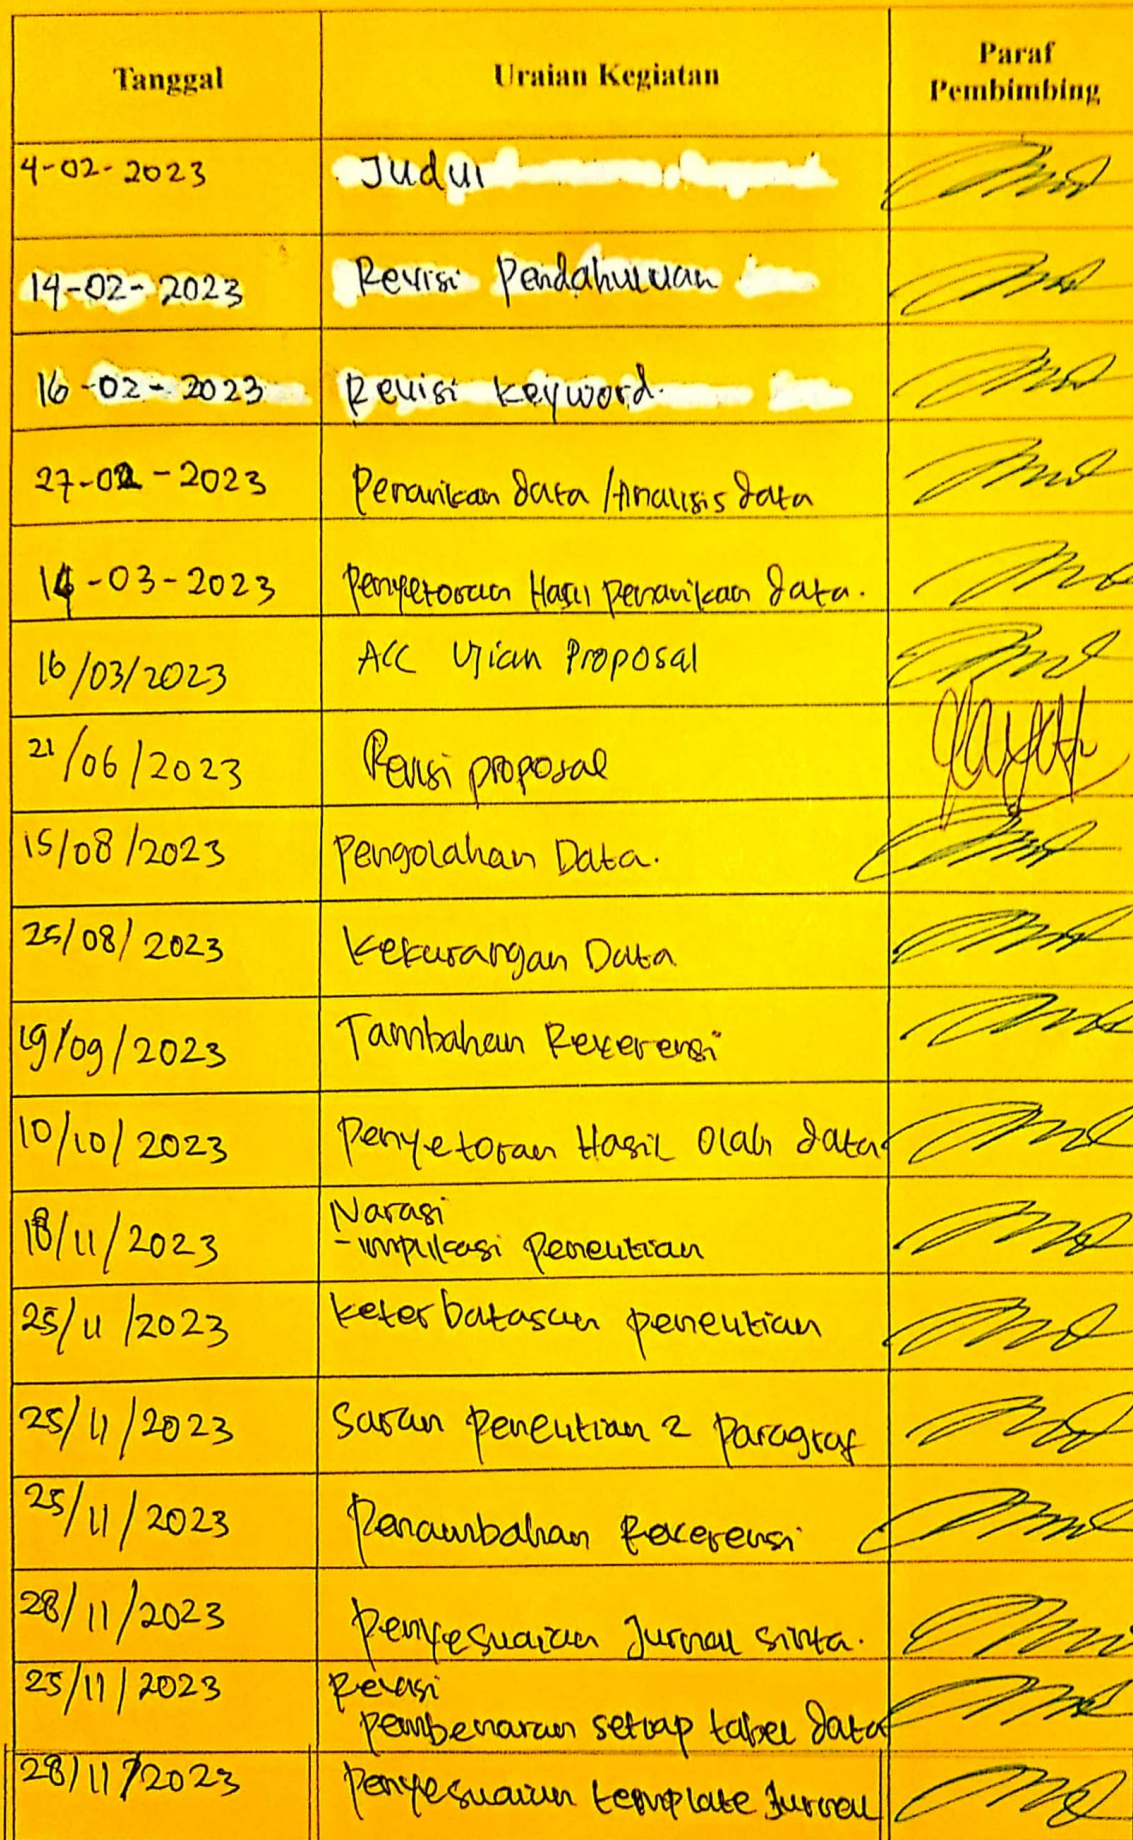 Tanggal Uraian Kegiatan Paraf
Pembimbing
4-02-2023 Judul
14-02-2023 Revisi Pendahuluan
16-02-2023 Revisi keyword.
27-02-2023 Penarikan data / Analisis data
14-03-2023 Penyetoran Hasil Penarikan data.
16/03/2023 ACC Ujian Proposal
21/06/2023 Revisi proposal
15/08/2023 Pengolahan Data.
25/08/2023 Kekurangan Data
19/09/2023 Tambahan Referensi
10/10/2023 Penyetoran Hasil Olah data
18/11/2023 Narasi
- implikasi Penelitian
25/11/2023 keterbatasan penelitian
25/11/2023 Saran Penelitian 2 Paragraf
25/11/2023 Penambahan Referensi
28/11/2023 Penyesuaian Jurnal sinta.
25/11/2023 Revisi
pembenaran setiap tabel data
28/11/2023 Penyesuaian template Jurnal